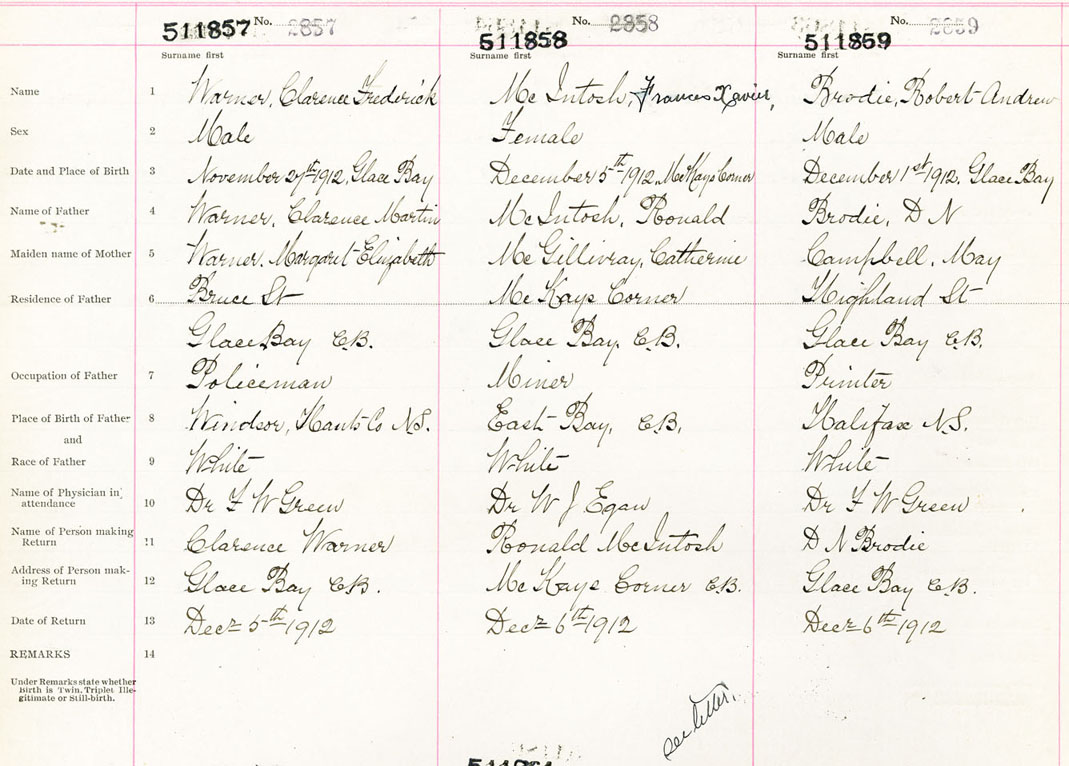 No. 2857 No. 2858 No. 2859
511857 511858 511859
Surname first Surname first Surname first
Name 1 Warner, Clarence Frederick Mc Intosh, Frances Xavier, Brodie, Robert Andrew
Sex 2 Male Female Male
Date and Place of Birth 3 November 27th 1912, Glace Bay December 5th 1912, McKays Corner December 1st 1912, Glace Bay
Name of Father 4 Warner, Clarence Martin McIntosh, Ronald Brodie, D N
Maiden name of Mother 5 Warner. Margaret Elizabeth McGillivray, Catherine Campbell, May
Residence of Father 6 Bruce St McKays Corner Highland St
Glace Bay C.B. Glace Bay, C.B. Glace Bay C.B.
Occupation of Father 7 Policeman Miner Printer
Place of Birth of Father 8 Windsor, Hants Co N.S. East Bay, C.B. Halifax N.S.
and
Race of Father 9 White White White
Name of Physician in
attendance 10 Dr F W Green Dr W J Egan Dr F W Green
Name of Person making
Return 11 Clarence Warner Ronald McIntosh D N Brodie
Address of Person mak-
ing Return 12 Glace Bay C.B. McKays Corner C.B. Glace Bay C.B.
Date of Return 13 Decr 5th 1912 Decr 6th 1912 Decr 6th 1912
REMARKS 14
Under Remarks state whether
Birth is Twin, Triplet Ille-
gitimate or Still-birth.
see letter.